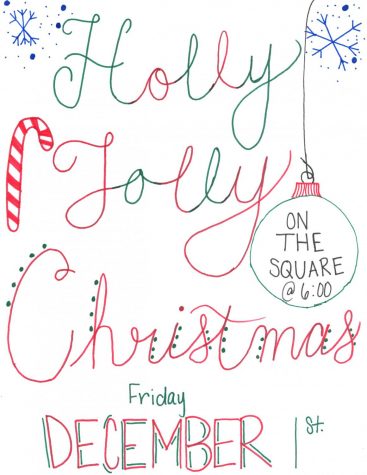 Holly
Jolly
ON
THE
SQUARE
@ 6:00
Christmas
Friday
DECEMBER 1st.